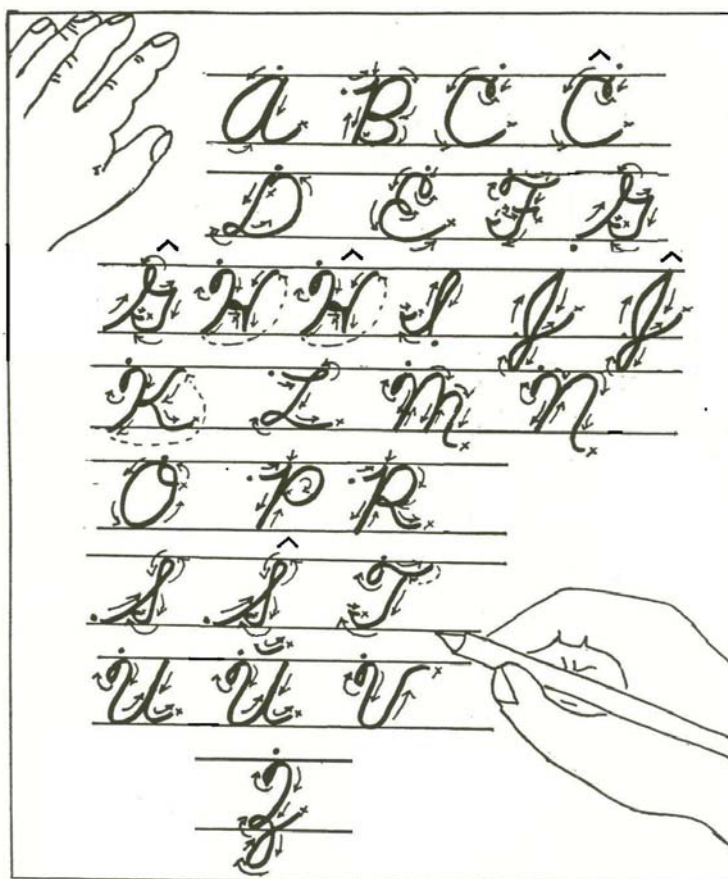 A B C Ĉ
D E F G
Ĝ H Ĥ I J Ĵ
K L M N
O P R
S Ŝ T
U Ŭ V
Z